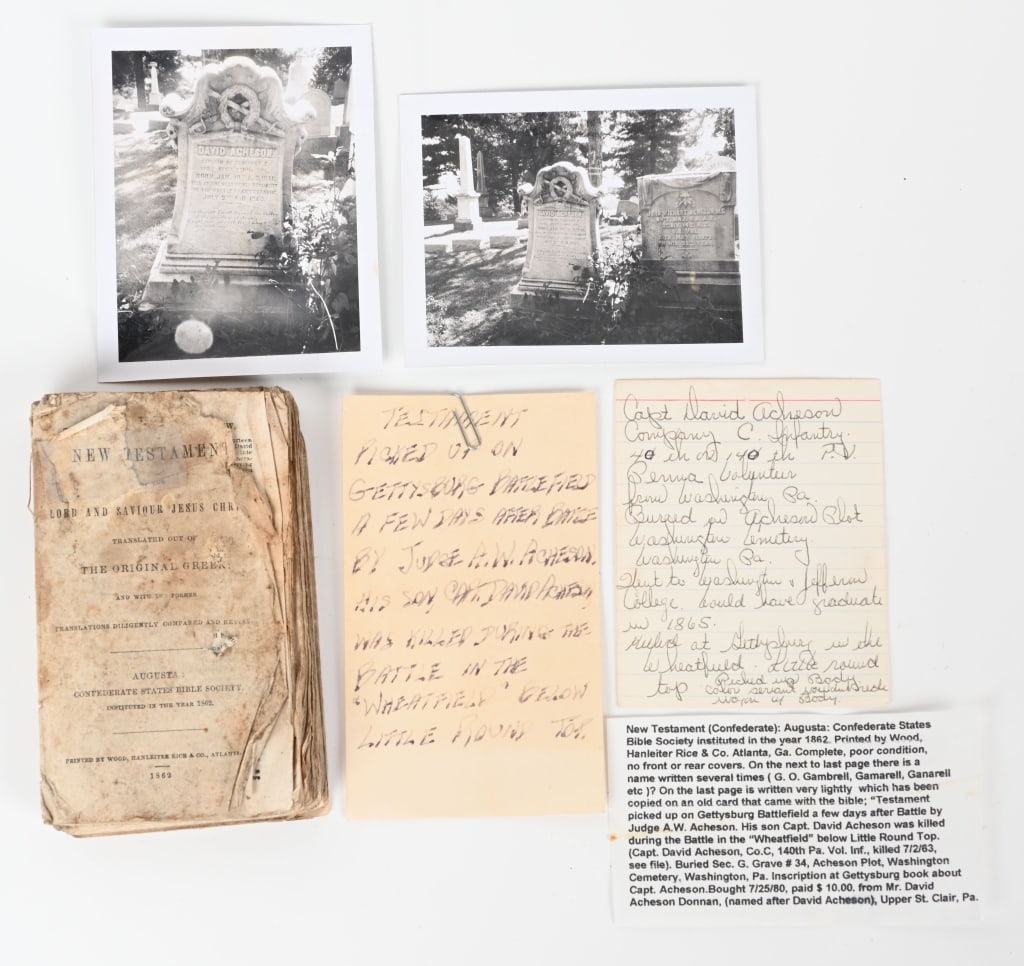 DAVID ACHESON
NEW TESTAMENT
LORD AND SAVIOUR JESUS CHR
TRANSLATED OUT OF
THE ORIGINAL GREEK:
AND WITH THE FORMER
TRANSLATIONS DILIGENTLY COMPARED AND REVISE
AUGUSTA:
CONFEDERATE STATES BIBLE SOCIETY,
INSTITUTED IN THE YEAR 1862.
PRINTED BY WOOD, HANLEITER RICE & CO., ATLANTA,
1862
TESTAMENT
PICKED UP ON
GETTYSBURG BATTLEFIELD
A FEW DAYS AFTER BATTLE
BY JUDGE A.W. ACHESON.
HIS SON, CAPT. DAVID ACHESON
WAS KILLED DURING THE
BATTLE IN THE
"WHEATFIELD" BELOW
LITTLE ROUND TOP.
Capt David Acheson
Company C. Infantry.
40 th or 140 th P.V.
Penna Volunteer
from Washington, Pa.
Buried in Acheson Plot
Washington Cemetery
Washington, Pa.
Went to Washington & Jefferson
College. Would have graduate
in 1865.
Killed at Gettysburg in the
Wheatfield. Little round
top Picked up Body.
color servant
wagon w Body.
New Testament (Confederate): Augusta: Confederate States
Bible Society instituted in the year 1862. Printed by Wood,
Hanleiter Rice & Co. Atlanta, Ga. Complete, poor condition,
no front or rear covers. On the next to last page there is a
name written several times ( G. O. Gambrell, Gamarell, Ganarell
etc )? On the last page is written very lightly which has been
copied on an old card that came with the bible; "Testament
picked up on Gettysburg Battlefield a few days after Battle by
Judge A.W. Acheson. His son Capt. David Acheson was killed
during the Battle in the "Wheatfield" below Little Round Top.
(Capt. David Acheson, Co.C, 140th Pa. Vol. Inf., killed 7/2/63,
see file). Buried Sec. G. Grave # 34, Acheson Plot, Washington
Cemetery, Washington, Pa. Inscription at Gettysburg book about
Capt. Acheson.Bought 7/25/80, paid $ 10.00. from Mr. David
Acheson Donnan, (named after David Acheson), Upper St. Clair, Pa.